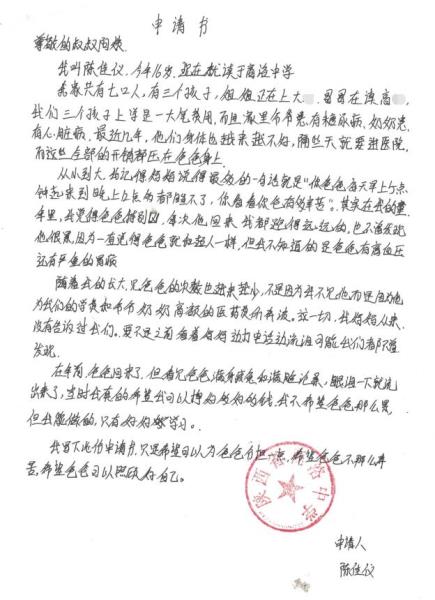 申请书
尊敬的叔叔阿姨
我叫陈佳仪，今年16岁，现在就读于商洛中学
我家共有七口人，有三个孩子，姐姐正在上大 哥哥在读高
我们三个孩子上学是一大笔费用，而且家里爷爷患有糖尿病，奶奶患
有心脏病，最近几年，他们身体也越来越不好，隔些天就要进医院，
而这些全部的开销都压在爸爸身上
从小到大，我记得妈妈说得最多的一句话就是“你爸爸每天早上5点
钟起来到晚上12点多都睡不了，你看看你爸有多辛苦”。其实在我的童
年里，我觉得爸爸特别 ，每次他回来，我都跑得远远的，也不曾发现
他很累，因为一直觉得爸爸就和超人一样，但我不知道的是爸爸有高血压
还有严重的胃病
随着我的长大，见爸爸的次数也越来越少，不是因为我不见他而是因为他
为我们的学费和爷爷奶奶高额的医药费所奔波，这一切，我妈妈从来
没有告诉过我们，要不是之前看着妈妈边打电话边流泪可能我们都不曾
发现。
在年前，爸爸回来了，但看见爸爸满身疲惫和满脸沧桑，眼泪一下就流
出来了，当时我真的希望我可以挣好多好多的钱，我不希望爸爸那么累
但我能做的，只有好好学习。
我写下此份申请书，只是希望可以为爸爸分担一点，希望爸爸不那么辛
苦，希望爸爸可以照顾好自己。
陕西省 洛中学
申请人
陈佳仪